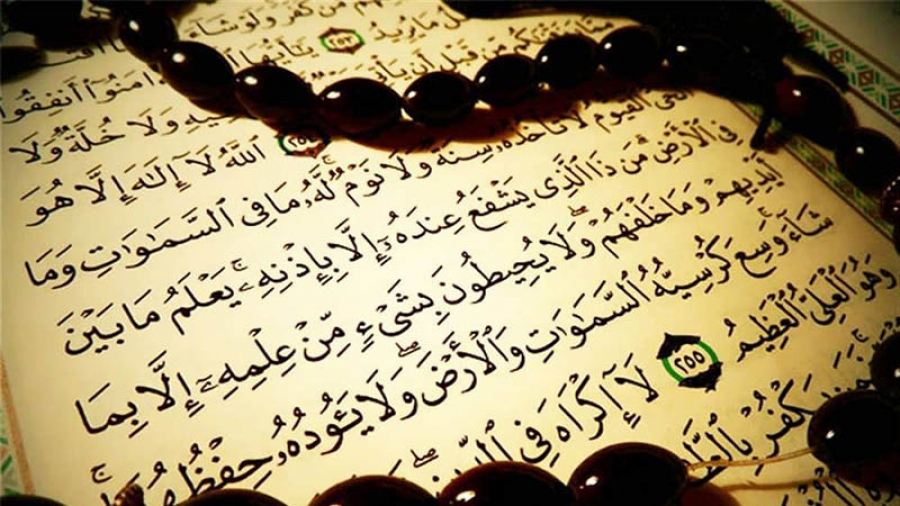 مَّن كَفَرَ وَلَوْ شَآءَ
مَا يُرِيدُ ٢٥٣ يَٰٓأَيُّهَا ءَامَنُوٓا۟ أَنفِقُوا۟
مِن قَبْلِ أَن يَأْتِىَ فِيهِ وَلَا خُلَّةٌ وَلَا
٢٥٤ ٱللَّهُ لَآ إِلَٰهَ إِلَّا هُوَ
ٱلْحَىُّ ٱلْقَيُّومُ لَا تَأْخُذُهُۥ سِنَةٌ وَلَا نَوْمٌ لَّهُۥ مَا فِى ٱلسَّمَٰوَٰتِ وَمَا
فِى ٱلْأَرْضِ مَن ذَا ٱلَّذِى يَشْفَعُ عِندَهُۥٓ إِلَّا بِإِذْنِهِۦ ۚ يَعْلَمُ مَا بَيْنَ
أَيْدِيهِمْ وَمَا خَلْفَهُمْ ۖ وَلَا يُحِيطُونَ بِشَىْءٍ مِّنْ عِلْمِهِۦٓ إِلَّا بِمَا
شَآءَ ۚ وَسِعَ كُرْسِيُّهُ ٱلسَّمَٰوَٰتِ وَٱلْأَرْضَ ۖ وَلَا يَـُٔودُهُۥ حِفْظُهُمَا ۚ
وَهُوَ ٱلْعَلِىُّ ٱلْعَظِيمُ ٢٥٥ لَآ إِكْرَاهَ فِى ٱلدِّينِ ۖ
يَكْفُرْ